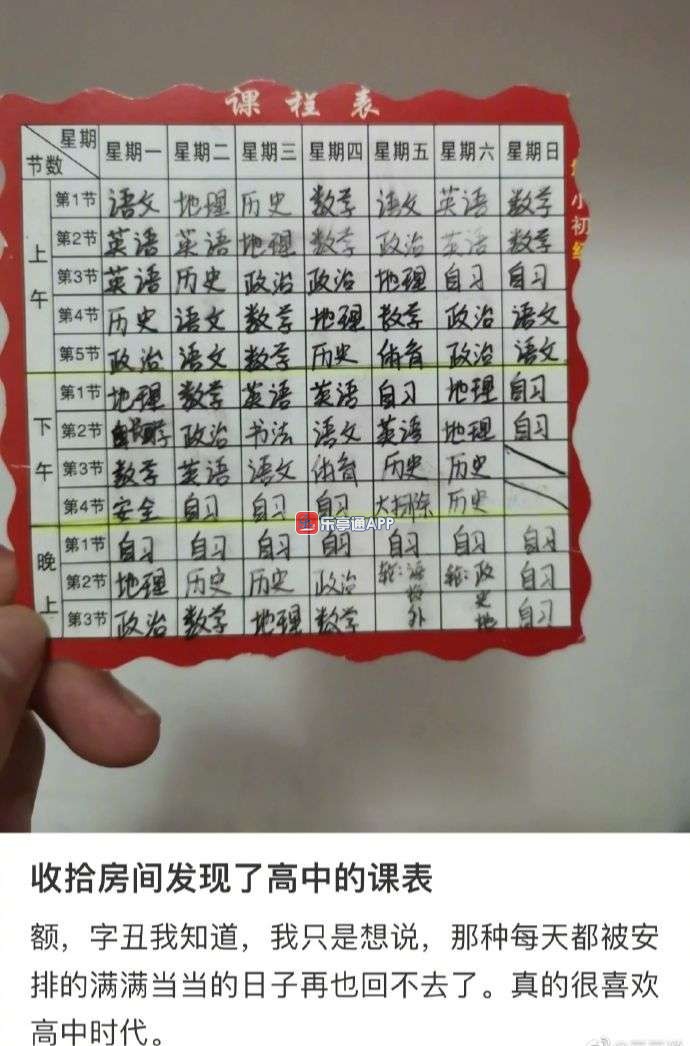 课程表
星期 星期一 星期二 星期三 星期四 星期五 星期六 星期日
节数
上午
第1节 语文 地理 历史 数学 语文 英语 数学
第2节 英语 英语 地理 数学 政治 英语 数学
第3节 英语 历史 政治 政治 地理 自习 自习
第4节 历史 语文 数学 地理 数学 政治 语文
第5节 政治 语文 数学 历史 体育 政治 语文
下午
第1节 地理 数学 英语 英语 自习 地理 自习
第2节 政治 书法 语文 英语 地理 自习
第3节 数学 英语 语文 体育 历史 历史
第4节 安全 自习 自习 自习 大扫除 历史
乐享通APP
晚上
第1节 自习 自习 自习 自习 自习 自习 自习
第2节 地理 历史 历史 政治 轮:语数外 轮:政史地 自习
第3节 政治 数学 地理 数学 自习
小初
收拾房间发现了高中的课表
额，字丑我知道，我只是想说，那种每天都被安
排的满满当当的日子再也回不去了。真的很喜欢
高中时代。